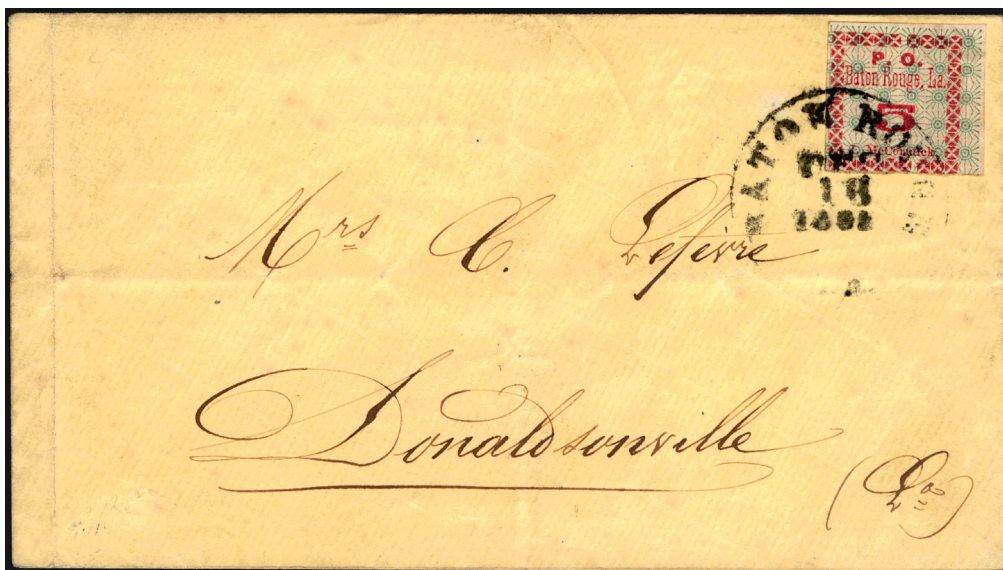 P. O.
Baton Rouge, La.
5
McCormick
BATON ROU
18
Mrs C. Lefèvre
Donaldsonville
(La)